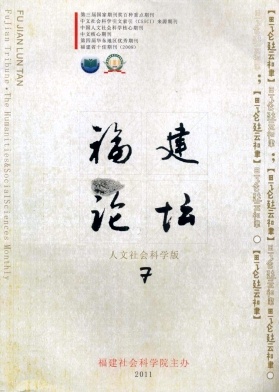 第三届国家期刊奖百种重点期刊
中文社会科学索引（CSSCI）来源期刊
中国人文社会科学核心期刊
中文核心期刊
第四届华东地区优秀期刊
福建省十佳期刊（2008）
FU JIAN LUN TAN
Fujian Tribune • The Humanities&SocialSciences Monthly
福建
论坛
人文社会科学版
7
福建社会科学院主办
2011